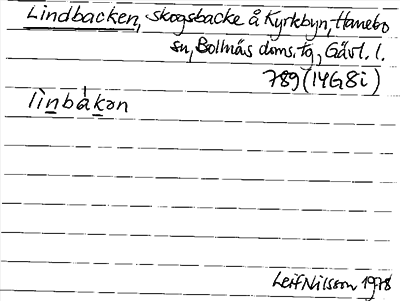 Lindbacken, skogsbacke å Kyrkbyn, Hanebo
sn, Bollnäs doms.tg, Gävl. l.
789 (14G8i)
lìnbákən
Leif Nilsson 1978